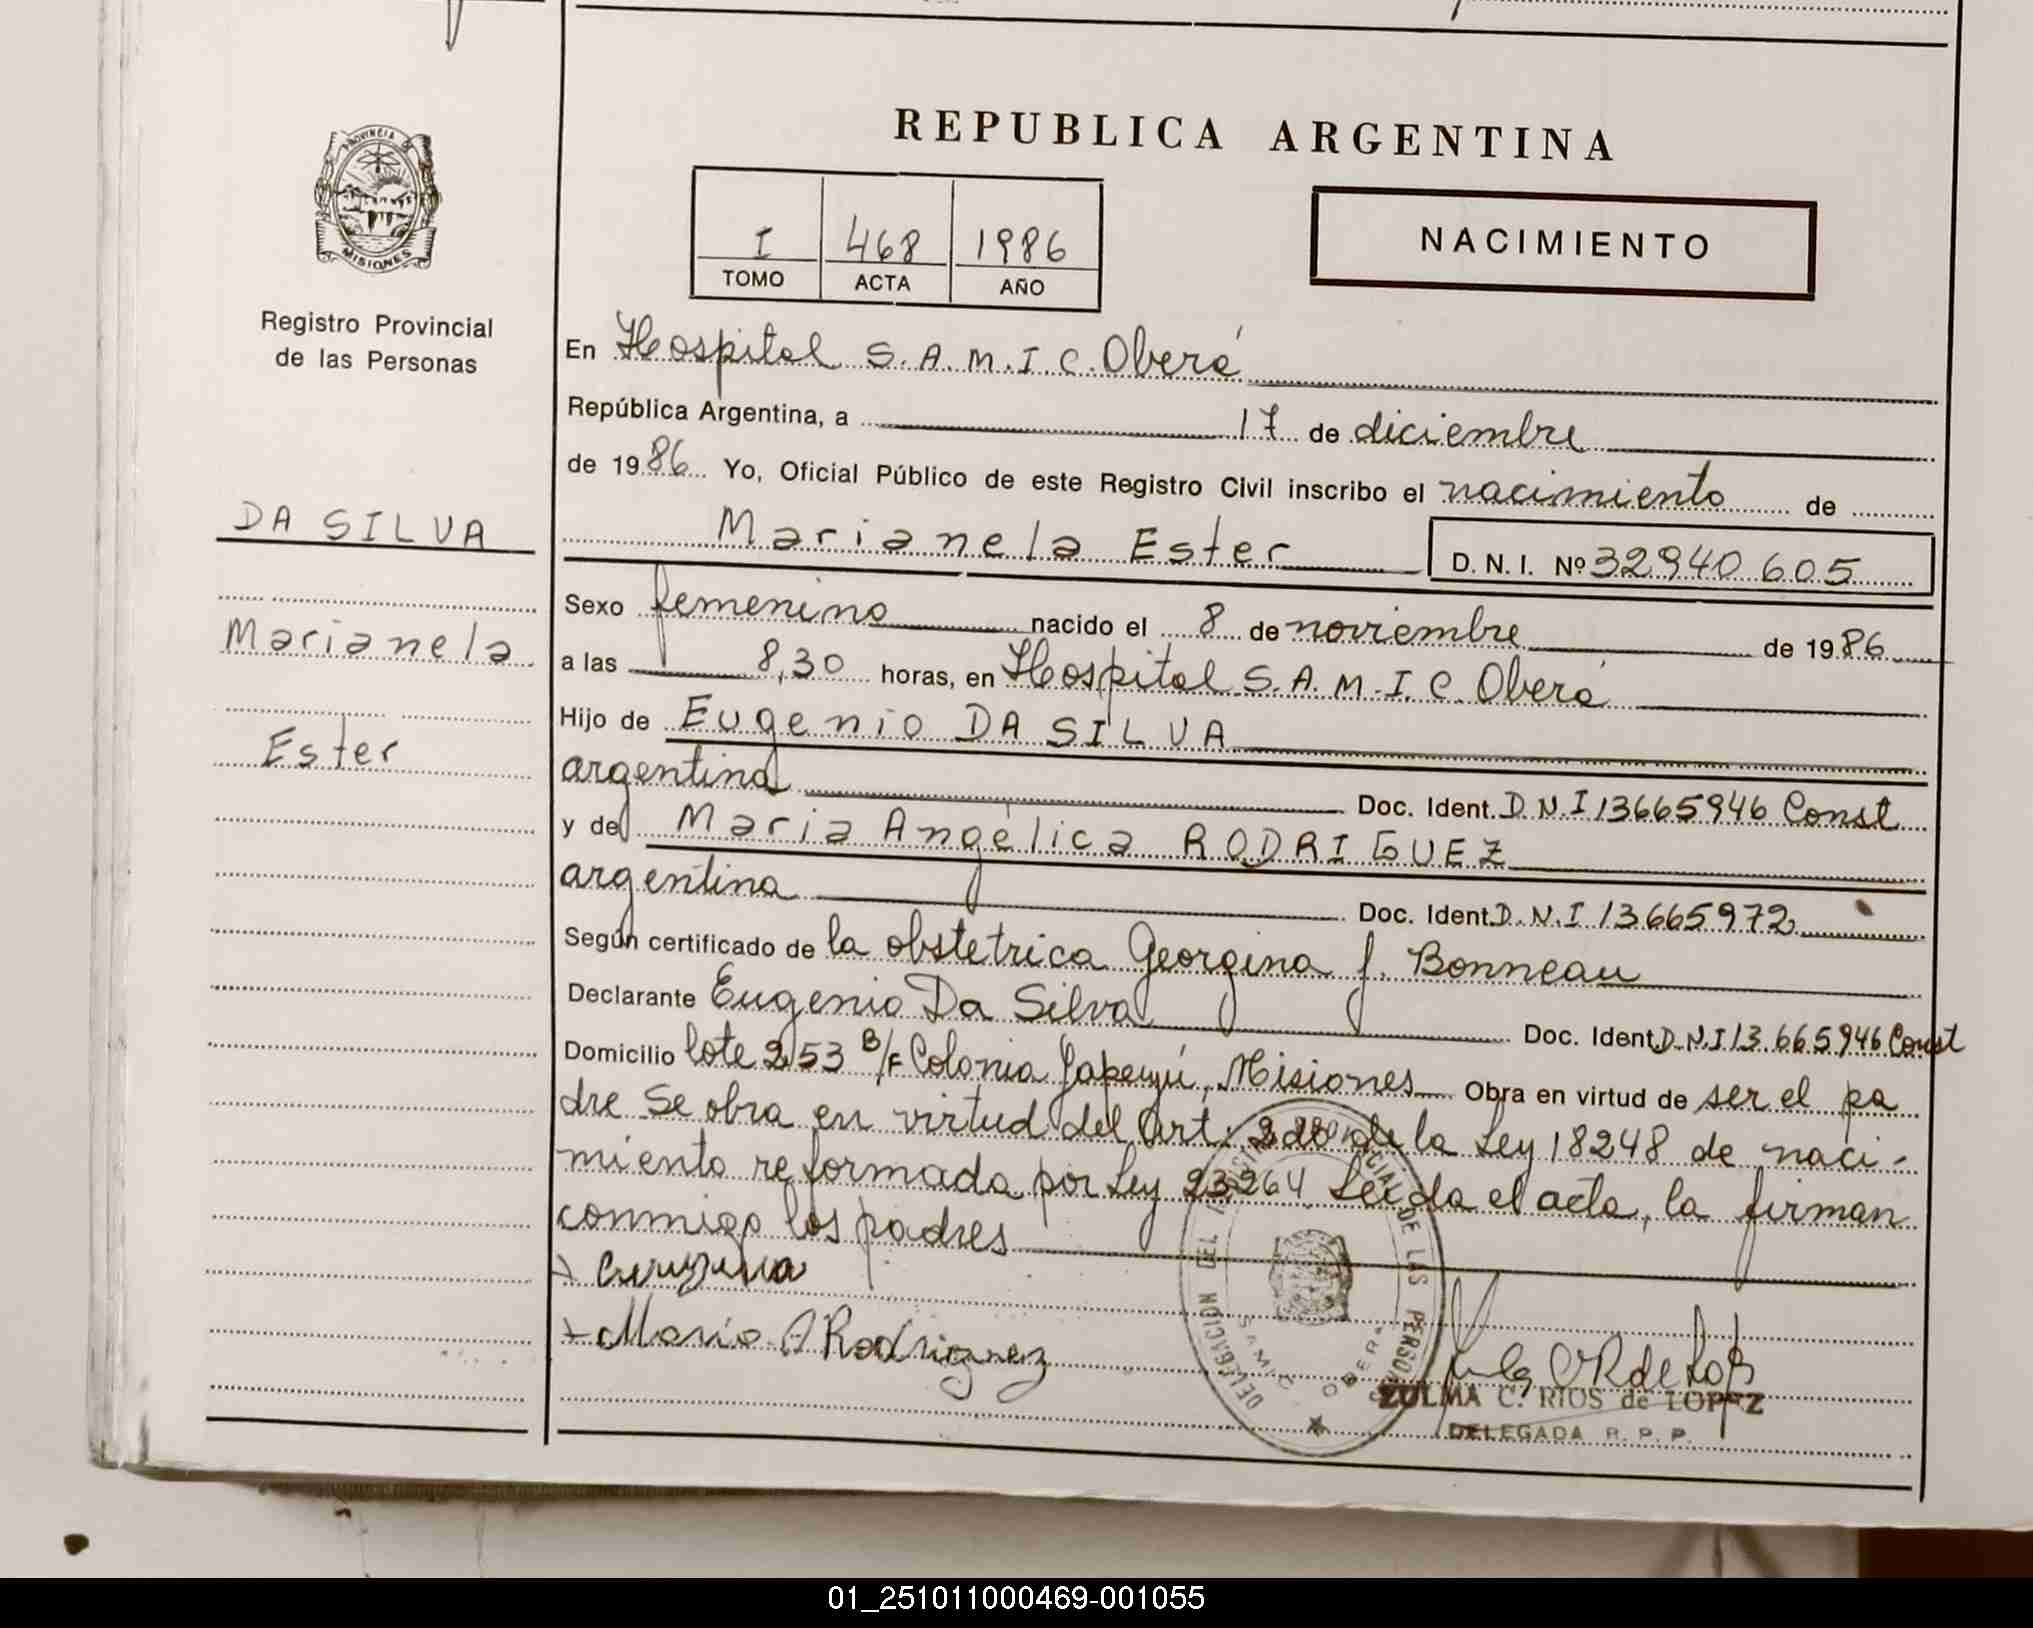 REPUBLICA ARGENTINA
PROVINCIA DE
MISIONES
Registro Provincial
de las Personas
I 468 1986
TOMO ACTA AÑO
NACIMIENTO
En Hospital S.A.M.I.C. Oberá
República Argentina, a 17 de diciembre
de 1986 Yo, Oficial Público de este Registro Civil inscribo el nacimiento de
DA SILVA
Marianela Ester D. N. I. Nº 32940605
Sexo femenino nacido el 8 de noviembre de 1986
Marianela
a las 8,30 horas, en Hospital S.A.M.I.C. Oberá
Hijo de Eugenio DA SILVA
Ester
argentina Doc. Ident. D.N.I 13665946 Const
y de Maria Angélica RODRIGUEZ
argentina Doc. Ident. D.N.I 13665972
Según certificado de la obstetrica Georgina J. Bonneau
Declarante Eugenio Da Silva Doc. Ident. D.N.I 13.665946 Const
Domicilio lote 253 B/F Colonia Yapeyú, Misiones Obra en virtud de ser el pa
dre Se obra en virtud del Art. 2do de la Ley 18248 de naci-
miento reformada por Ley 23264 Leída el acta, la firman
conmigo los padres
Maria A Rodriguez
DELEGACION DEL REGISTRO PROVINCIAL DE LAS PERSONAS
SAMIC OBERA
ZULMA C. RIOS de LOPEZ
DELEGADA R. P. P.
01_251011000469-001055